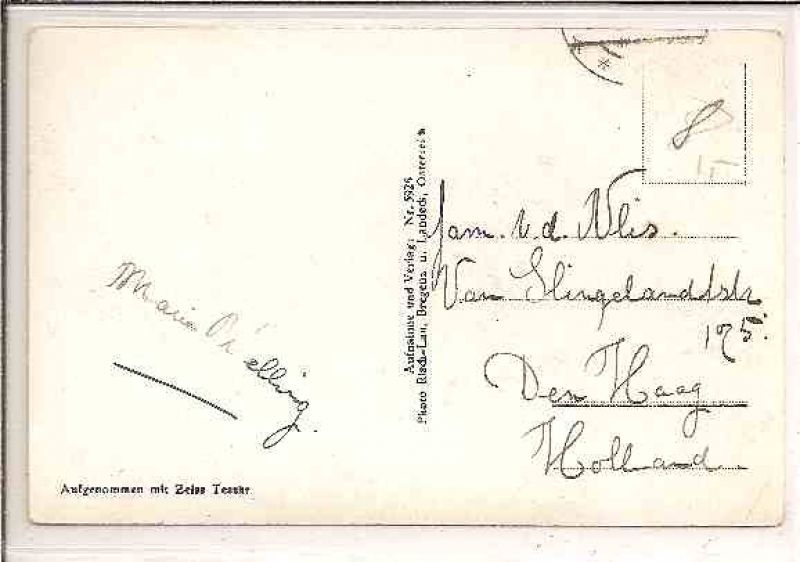 8
15
Aufnahme und Verlag: Nr. 5928
Photo Risch-Lau, Bregenz u. Landeck, Österreich
Fam. v.d. Vlis.
Van Slingelandtstr
175.
Den Haag
Holland
Maria
Aufgenommen mit Zeiss Tessar